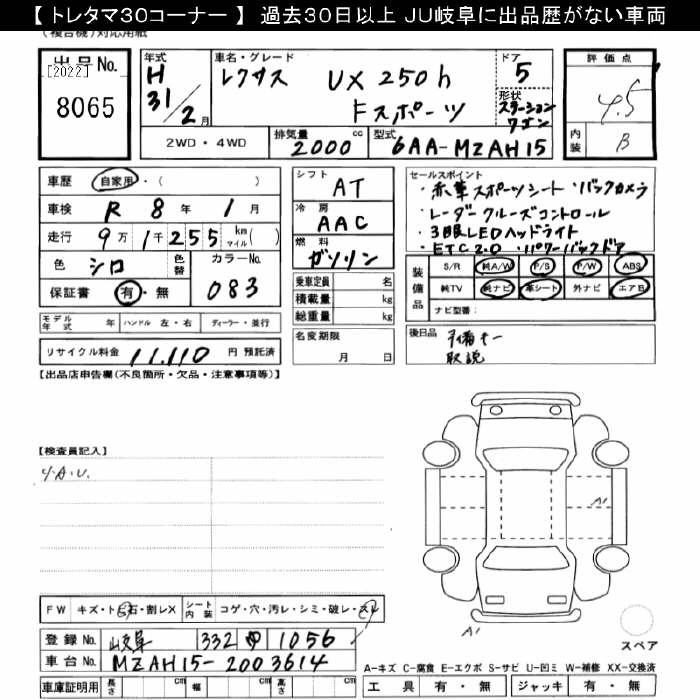 【 トレタマ30コーナー 】 過去30日以上 JU岐阜に出品歴がない車両
(複合機)対応用紙
出品No.
[2022]
8065
年式
H
31/2月
車名・グレード
レクサス UX 250h
Fスポーツ
ドア
5
形状
ステーション
ワゴン
評価点
4.5
内装
B
2WD・4WD
排気量
2000
cc
型式
6AA-MZAH15
車歴
自家用・( )
車検
R 8年 1月
走行
9万1千255
km
マイル
( )
色
シロ
色替
カラーNo.
083
保証書
有・無
シフト
AT
冷房
AAC
燃料
ガソリン
乗車定員 名
積載量 kg
総重量 kg
名変期限
月 日
セールスポイント
・赤革スポーツシート ・バックカメラ
・レーダークルーズコントロール
・3眼LEDヘッドライト
・ETC2.0 ・パワーバックドア
装備品
S/R 純A/W P/S P/W ABS
純TV 純ナビ 革シート 外ナビ エアB
ナビ型番:
モデル年式 年 ハンドル 左・右 ディーラー・並行
リサイクル料金 11,110 円 預託済
後日品
予備キー
取説
【出品店申告欄(不良箇所・欠品・注意事項等)】
【検査員記入】
A1
A1
FW キズ・ト石・割レX
シート内装 コゲ・穴・汚レ・シミ・破レ・スレ
登録No. 岐阜 332 1056
車台No. MZAH15-2003614
車庫証明用 長さ cm 幅 cm 高さ cm
スペア
A-キズ C-腐食 E-エクボ S-サビ U-凹ミ W-補修 XX-交換済
工具 有・無 ジャッキ 有・無